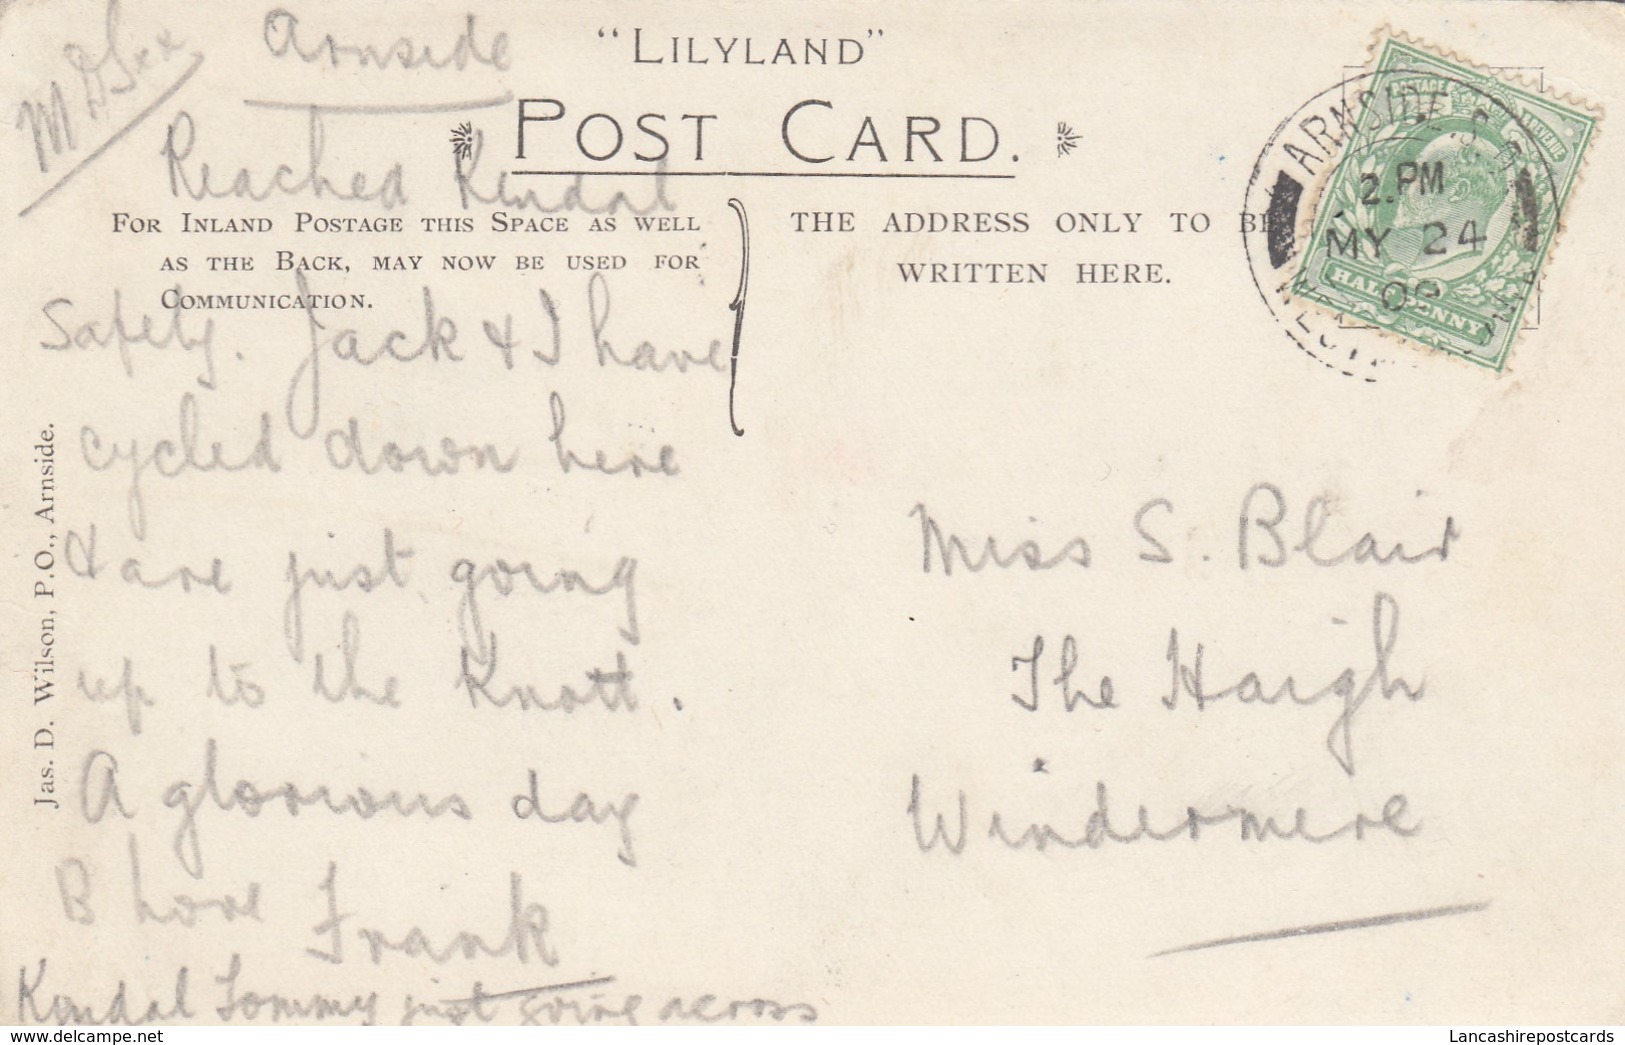 "LILYLAND"
POST CARD.
FOR INLAND POSTAGE THIS SPACE AS WELL
AS THE BACK, MAY NOW BE USED FOR
COMMUNICATION.
THE ADDRESS ONLY TO BE
WRITTEN HERE.
Jas. D. Wilson, P.O., Arnside.
Arnside
Reached Kendal
Safely. Jack & I have
cycled down here
& are just going
up to the Knott.
A glorious day
B Love Frank
Kendal Tommy just going across
Miss S. Blair
The Haigh
Windermere
ARNSIDE. S.O.
2. PM
MY 24
09
POSTAGE REVENUE
HALFPENNY
Lancashirepostcards